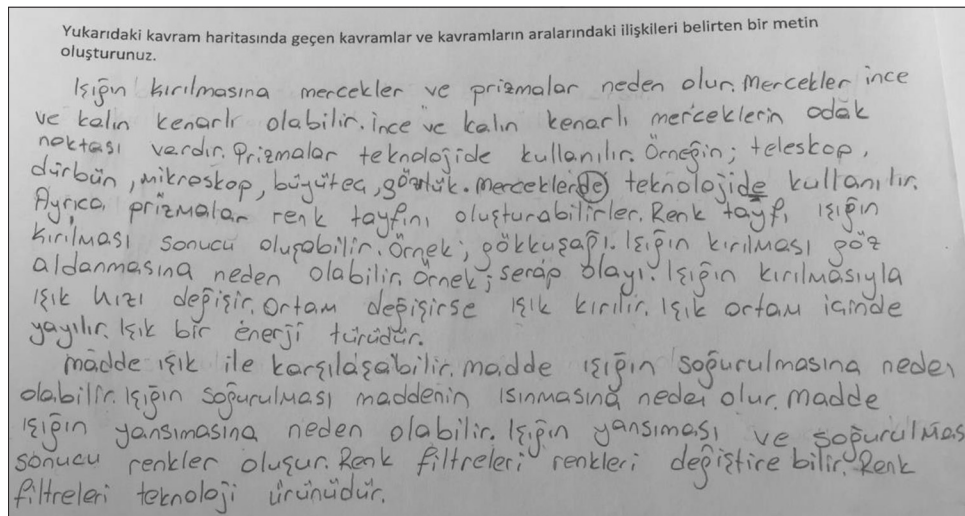 Yukarıdaki kavram haritasında geçen kavramlar ve kavramların aralarındaki ilişkileri belirten bir metin
oluşturunuz.
Işığın kırılmasına mercekler ve prizmalar neden olur. Mercekler ince
ve kalın kenarlı olabilir. İnce ve kalın kenarlı merceklerin odak
noktası vardır. Prizmalar teknolojide kullanılır. Örneğin; teleskop,
dürbün, mikroskop, büyüteç, gözlük. Mercekler de teknolojide kullanılır.
Ayrıca prizmalar renk tayfını oluşturabilirler. Renk tayfı ışığın
kırılması sonucu oluşabilir. Örnek; gökkuşağı. Işığın kırılması göz
aldanmasına neden olabilir. Örnek; serap olayı. Işığın kırılmasıyla
ışık hızı değişir. Ortam değişirse ışık kırılır. Işık ortam içinde
yayılır. Işık bir enerji türüdür.
madde ışık ile karşılaşabilir. madde ışığın soğurulmasına neden
olabilir. Işığın soğurulması maddenin ısınmasına neden olur. madde
ışığın yansımasına neden olabilir. Işığın yansıması ve soğurulmas
sonucu renkler oluşur. Renk filtreleri renkleri değiştirebilir. Renk
filtreleri teknoloji ürünüdür.